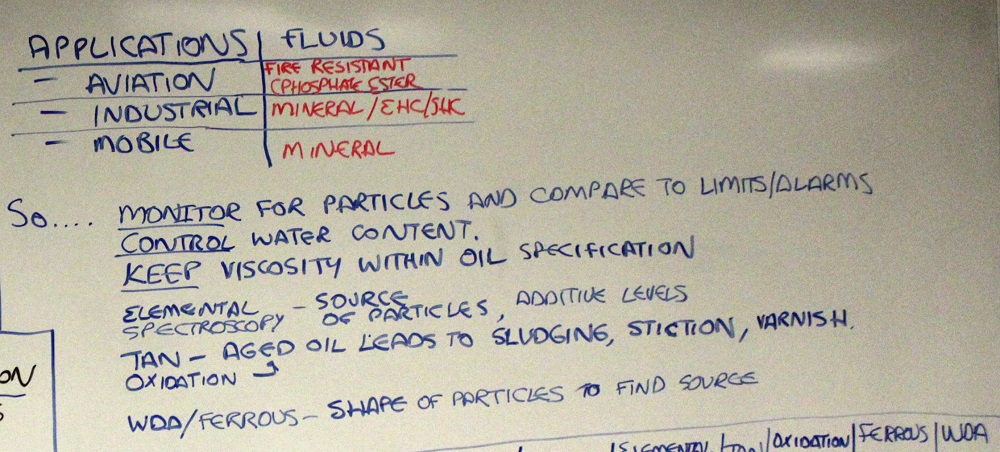 APPLICATIONS | FLUIDS
- AVIATION | FIRE RESISTANT
(PHOSPHATE ESTER
- INDUSTRIAL | MINERAL/EHC/SHC
- MOBILE | MINERAL
So.... MONITOR FOR PARTICLES AND COMPARE TO LIMITS/ALARMS
CONTROL WATER CONTENT.
KEEP VISCOSITY WITHIN OIL SPECIFICATION
ELEMENTAL SPECTROSCOPY - SOURCE OF PARTICLES, ADDITIVE LEVELS
TAN - AGED OIL LEADS TO SLUDGING, STICTION, VARNISH.
OXIDATION
WDA/FERROUS - SHAPE OF PARTICLES TO FIND SOURCE
ON
ELEMENTAL/TAN/OXIDATION|FERROUS|WDA